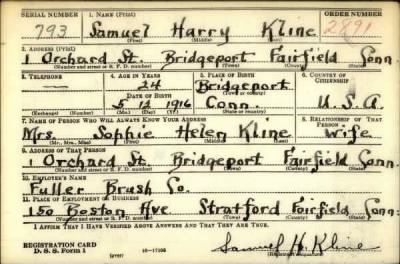 SERIAL NUMBER 1. NAME (Print) ORDER NUMBER
793 Samuel Harry Kline 2891
(First) (Middle) (Last)
2. ADDRESS (Print)
1 Orchard St. Bridgeport Fairfield Conn.
(Number and street or R. F. D. number) (Town) (County) (State)
3. TELEPHONE 4. AGE IN YEARS 5. PLACE OF BIRTH 6. COUNTRY OF CITIZENSHIP
— 24 Bridgeport
DATE OF BIRTH (Town or county)
5 12 1916 Conn. U.S.A.
(Exchange) (Number) (Mo.) (Day) (Yr.) (State or country)
7. NAME OF PERSON WHO WILL ALWAYS KNOW YOUR ADDRESS 8. RELATIONSHIP OF THAT PERSON
Mrs. Sophie Helen Kline Wife
(Mr., Mrs., Miss) (First) (Middle) (Last)
9. ADDRESS OF THAT PERSON
1 Orchard St. Bridgeport Fairfield Conn.
(Number and street or R. F. D. number) (Town) (County) (State)
10. EMPLOYER'S NAME
Fuller Brush Co.
11. PLACE OF EMPLOYMENT OR BUSINESS
150 Boston Ave. Stratford Fairfield Conn.
(Number and street or R. F. D. number) (Town) (County) (State)
I AFFIRM THAT I HAVE VERIFIED ABOVE ANSWERS AND THAT THEY ARE TRUE.
REGISTRATION CARD
D. S. S. Form 1 Samuel H. Kline
(over)